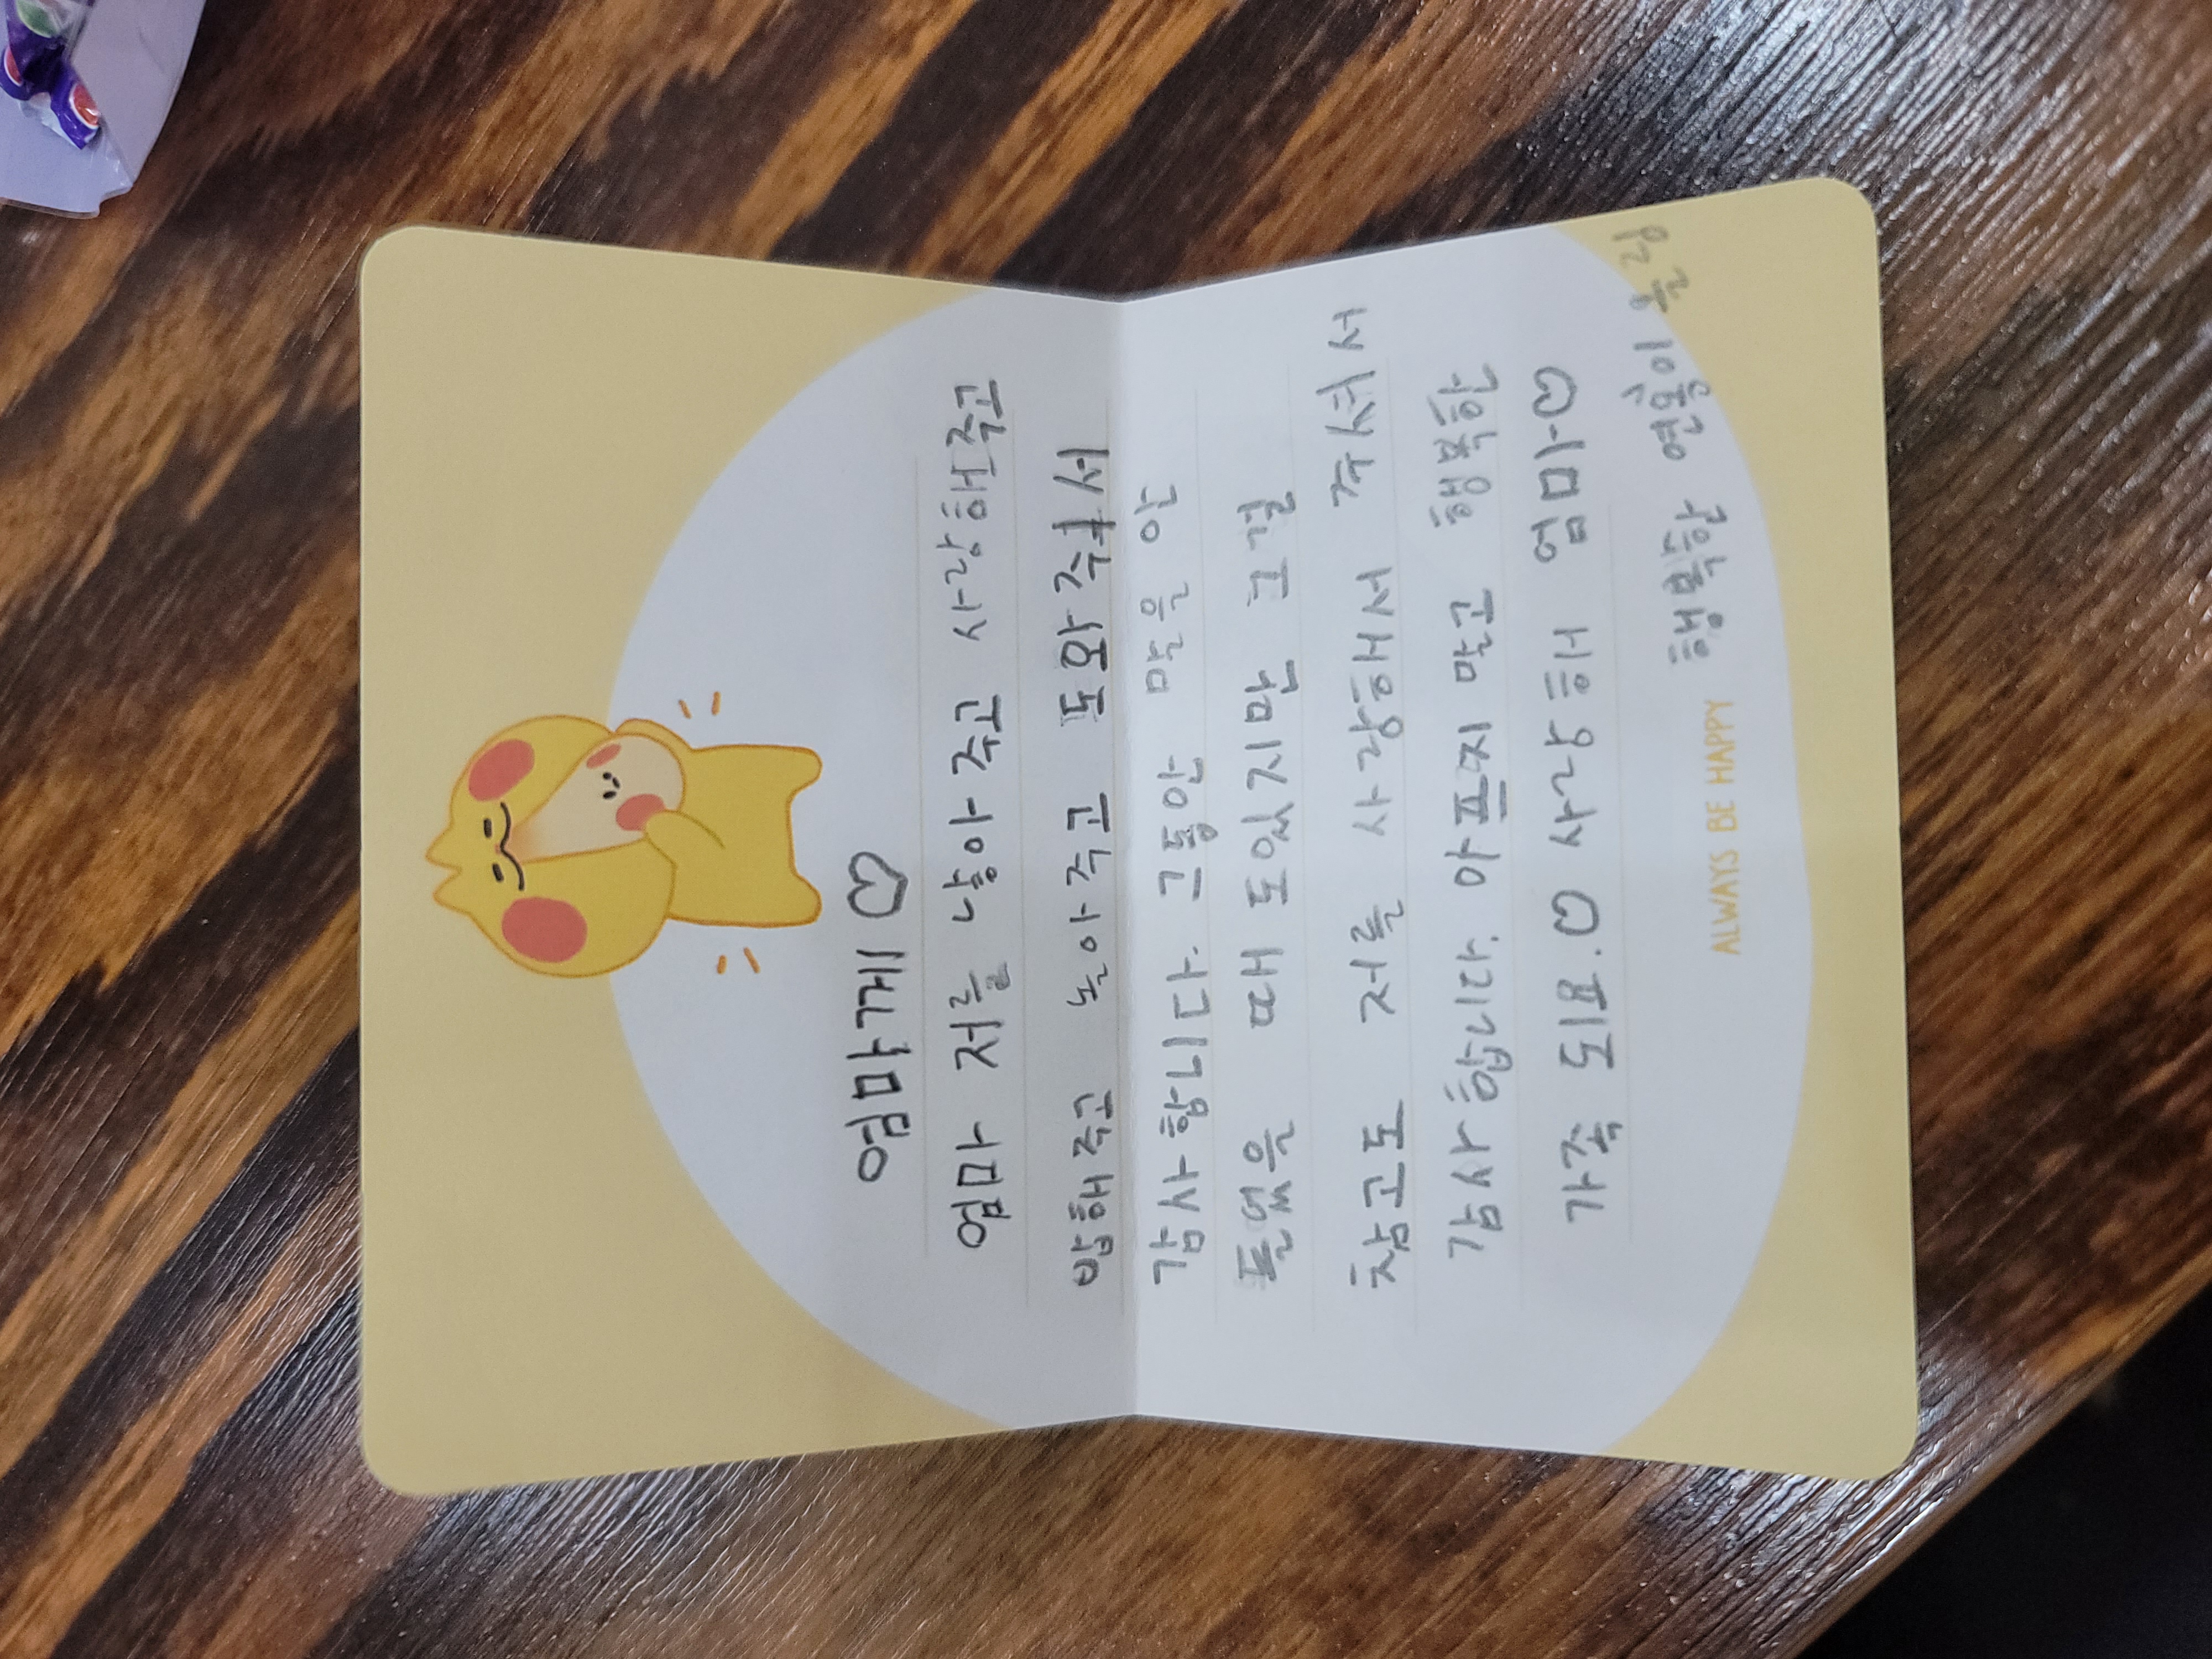 엄마께 ♡
엄마 저를 낳아 주고 사랑해주고
밥해주고 놀아주고 도와주셔서
감사합니다. 그동안 말을 안
들었을 때도 있지만 그걸
참고도 저를 사랑해서 주셔서
감사합니다. 아프지 말고 행복한
가족 되요. ♡ 사랑해 엄마♡
행복한 연홍이 올림
ALWAYS BE HAPPY